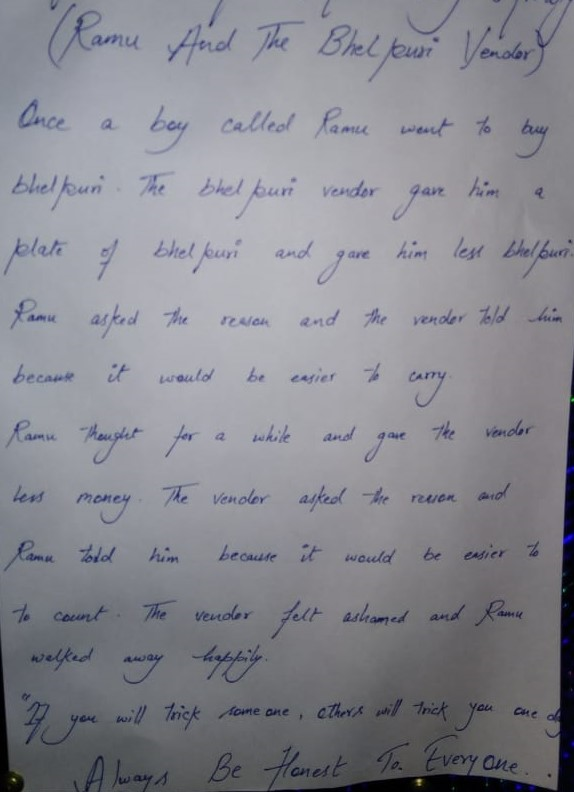 (Ramu And The Bhelpuri Vendor)
Once a boy called Ramu went to buy
bhelpuri. The bhelpuri vendor gave him a
plate of bhelpuri and gave him less bhelpuri.
Ramu asked the reason and the vendor told him
because it would be easier to carry.
Ramu thought for a while and gave the vendor
less money. The vendor asked the reason and
Ramu told him because it would be easier to
to count. The vendor felt ashamed and Ramu
walked away happily.
"If you will trick someone, others will trick you one
Always Be Honest To Everyone...